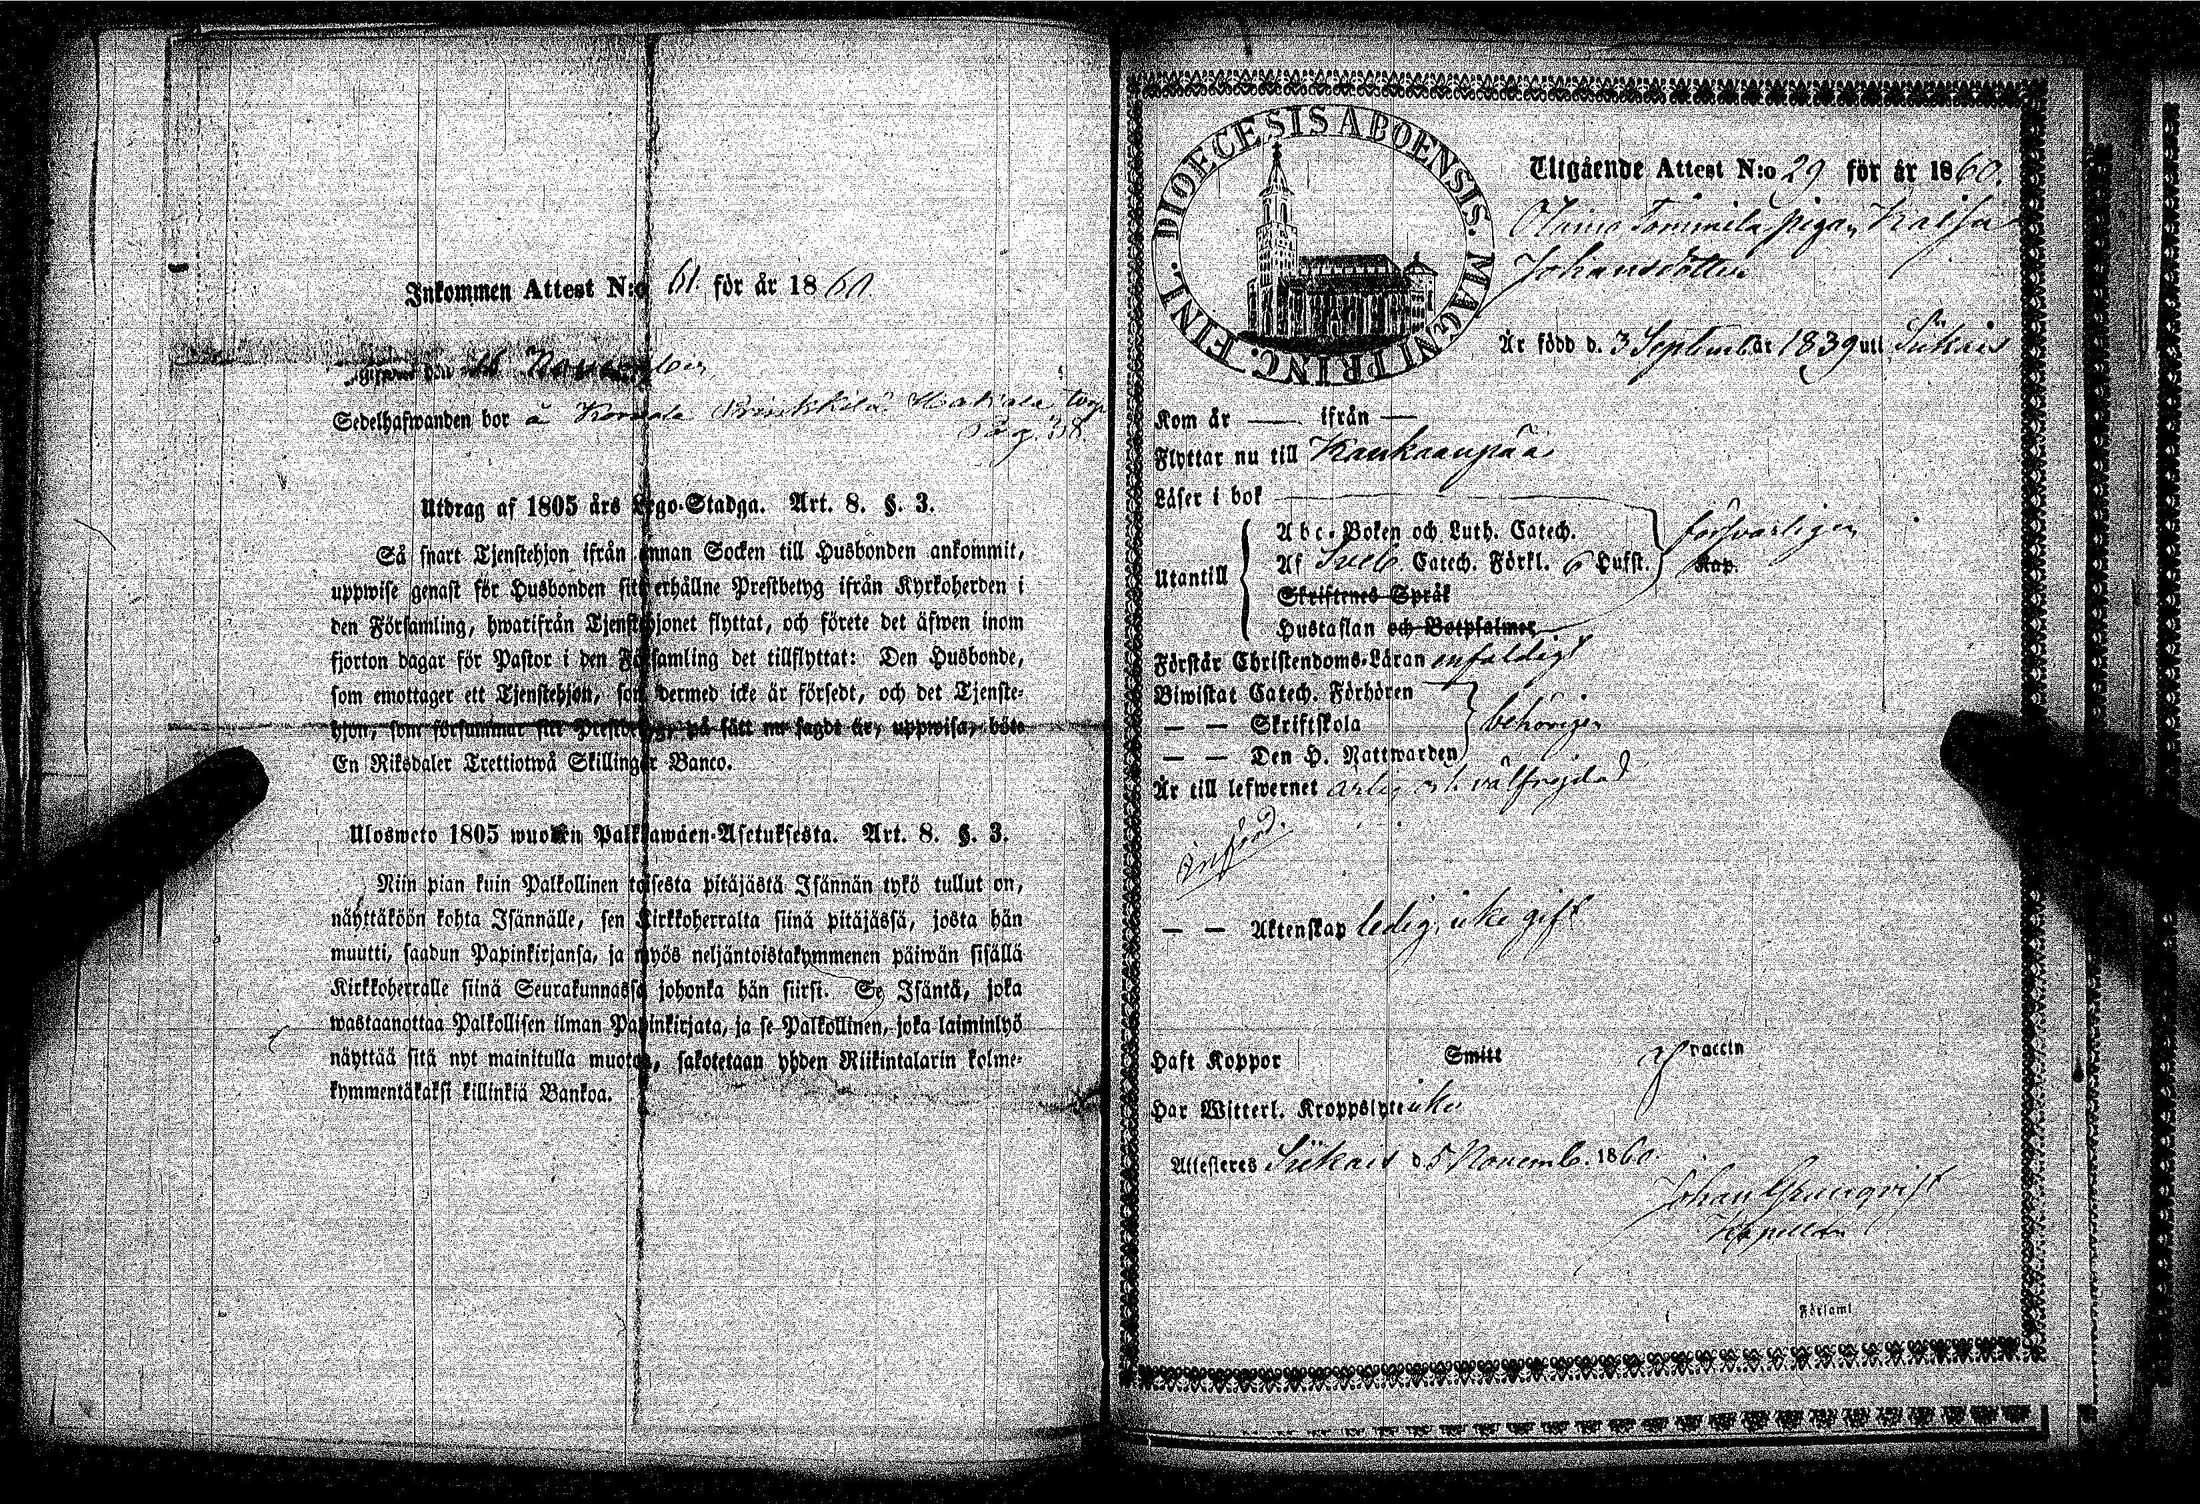 Inkommen Attest N:o 61. för år 1860.
den Novemb
Sedelhafwanden bor å torp
Pag. 358
Utdrag af 1805 års Lego-Stadga. Art. 8. §. 3.
Så snart Tjenstehjon ifrån annan Socken till Husbonden ankommit,
uppwise genast för Husbonden sitt erhållne Prestbetyg ifrån Kyrkoherden i
den Församling, hwarifrån Tjenstehjonet flyttat, och förete det äfwen inom
fjorton dagar för Pastor i den Församling det tillflyttat: Den Husbonde,
som emottager ett Tjenstehjon, som dermed icke är försedt, och det Tjenste-
hjon, som försummar sitt Prestbetyg, på sätt nu sagdt är, uppwisa, böte
En Riksdaler Trettiotwå Skillingar Banco.
Ulosweto 1805 wuoden Palkkawäen-Asetuksesta. Art. 8. §. 3.
Niin pian kuin Palkollinen toisesta pitäjästä Isännän tykö tullut on,
näyttäköön kohta Isännälle, sen Kirkkoherralta siinä pitäjässä, josta hän
muutti, saadun Papinkirjansa, ja myös neljäntoistakymmenen päiwän sisällä
Kirkkoherralle siinä Seurakunnassa johonka hän siirsi. Se Isäntä, joka
wastaanottaa Palkollisen ilman Papinkirjata, ja se Palkollinen, joka laiminlyö
näyttää sitä nyt mainitulla muotoa, sakotetaan yhden Riikintalarin kolme-
kymmentäkaksi killinkiä Bankoa.
DIOECESIS ABOENSIS. MAGNI PRINC. FINL.
Utgående Attest N:o 29 för år 1860.
Tommila pigan Kaisa
Johansdotter
Är född d. 3 September 1839 uti Siikais
Kom år — ifrån —
Flyttar nu till Kankaanpää
Läser i bok
Utantill
Abc-Boken och Luth. Catech.
Af Sveb. Catech. Förkl. 6 Hufst. Kap.
försvarligen
Skriftenes Språk
Hustaflan och Botpsalmer
Förstår Christendoms-Läran enfaldigt
Biwistat Catech. Förhören
— — Skriftskola
behörigen
— — Den H. Nattwarden
Är till lefwernet ärlig och välfrejdad
införd.
— — Äktenskap ledig, icke gift
Haft Koppor Smitt vaccin
Har Witterl. Kroppslyte icke
Attesteres Siikais d 5 Novemb. 1860.
Johan Granqvist
Kapellan
Församl